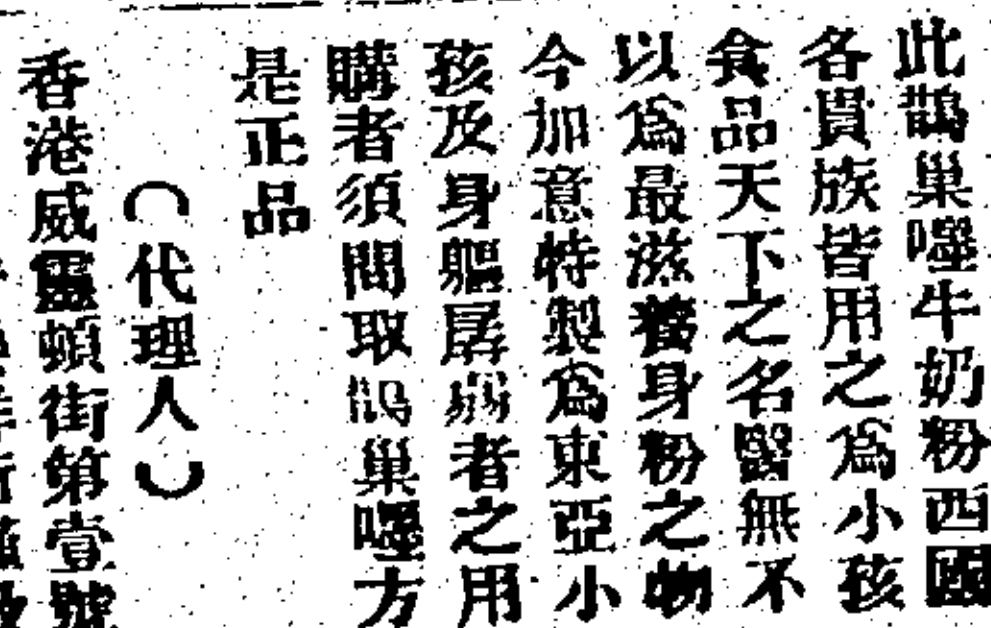 此鵲巢嘜牛奶粉西國
各貴族皆用之爲小孩
食品天下之名醫無不
以爲最滋養身粉之物
今加意特製爲東亞小
孩及身軀孱弱者之用
購者須問取鵲巢嘜方
是正品
（代理人）
香港威靈頓街第壹號